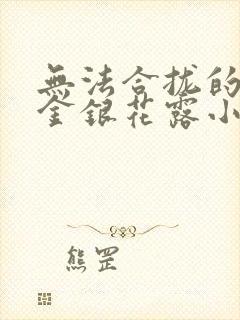 無法合拢的
金銀花露小
熊罡